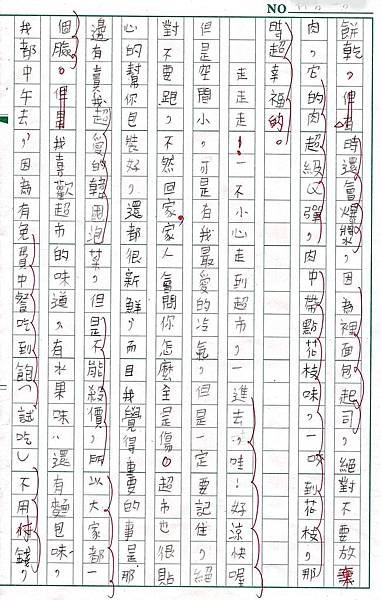 NO
餅乾，但有時還會爆漿，因為裡面包起司，絕對不要放棄
肉，它的肉超級Q彈，肉中帶點花枝味，一咬到花枝，那
時超幸福的。
走走走！一不小心走到超市，一進去，哇！好涼快喔
但是空間小，可是有我最愛的冷氣，但是一定要記住，絕
對不要跑，不然回家家人會問你怎麼全是傷。超市也很貼
心的幫你包裝好，還都很新鮮，而且我覺得重要的事是那
邊有賣我超愛的韓國泡菜，但是不能殺價，所以大家都一
個臉。但是我喜歡超市的味道，有水果味、還有麵包味，
我都中午去，因為有免費中餐吃到飽（試吃）不用付錢，